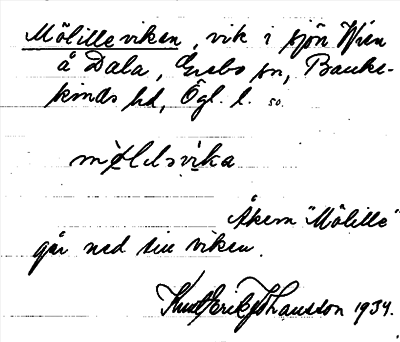 Mölilleviken, vik i sjön Ören
å Dala, Grebo sn, Banke-
kinds hd, Ögl. l. so.
Åkern "Mölille"
går ned till viken.
Knut Erik Johansson 1934.